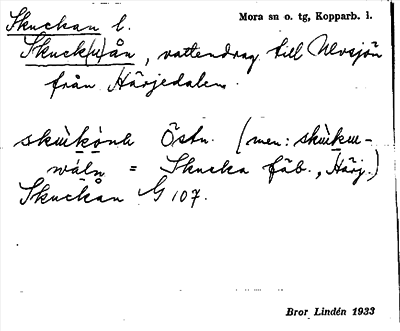 Skuckan l. Mora sn o. tg, Kopparb. l.
Skuck(u)ån, vattendrag till Ulvsjön
från Härjedalen.
skùkånɑ Östn. (men: skùku-
wáln = Skucka fäb., Härj.)
Skuckån G 107.
Bror Lindén 1933